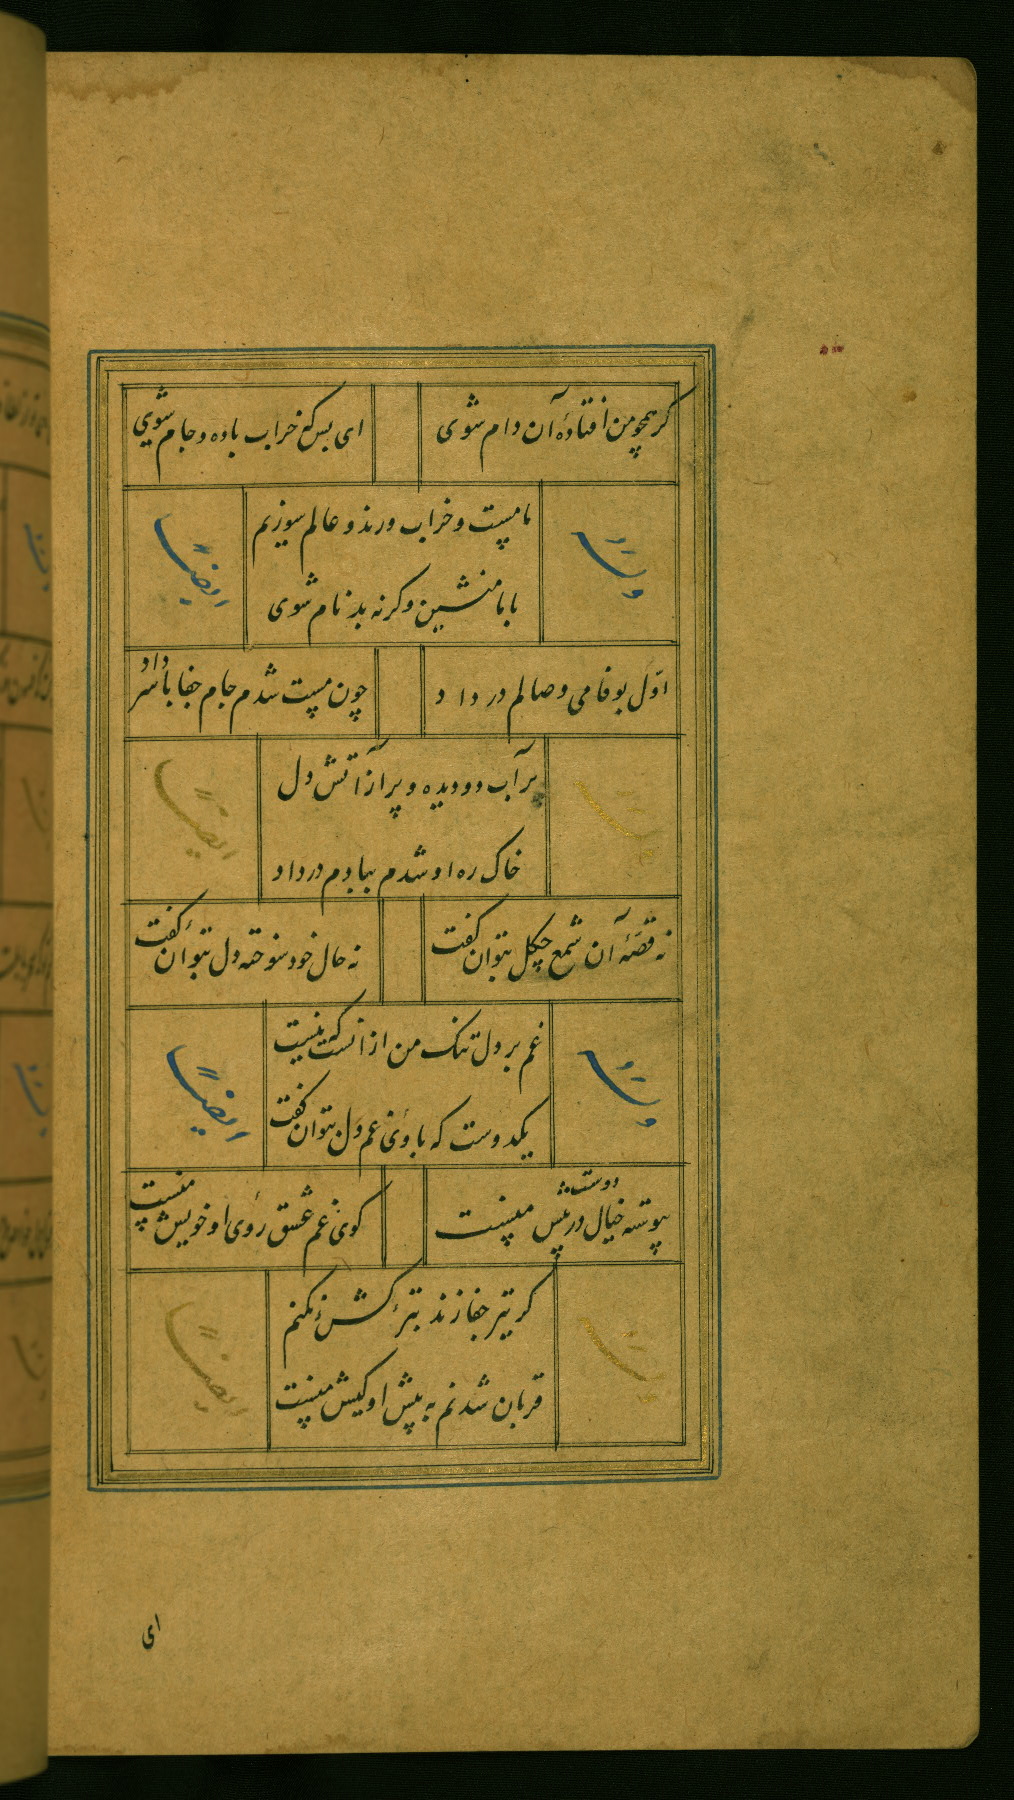 کر همچو من افتادهٔ آن دام شوی
ای بس که خراب باده و جام شوی
ما مست و خراب و رند و عالم سوزیم
وله
ایضاً
با ما منشین وکرنه بدنام شوی
اوّل بوفا می وصالم درداد
چون مست شدم جام جفا با سر داد
پر آب دو دیده و پر از آتش دل
وله
ایضاً
خاک ره او شدم ببادم درداد
نه قصّهٔ آن شمع چکل بتوان کفت
نه حال خود سوخته دل بتوان کفت
غم بر دل تنک من از آنست که نیست
وله
ایضاً
یکدوست که با وی غم دل بتوان کفت
پیوسته خیال دوست در پیش منست
کوی غم عشق روی او خویش منست
کر تیر جفا زند
وله
ایضاً
قربان شدنم به پیش او کیش منست
ای